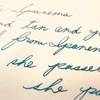 Ipanema
and tan and yo
from Ipanema
she passe
she p